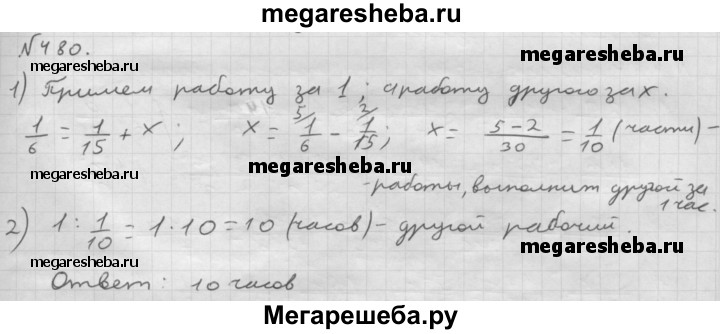 megaresheba.ru
№480.
megaresheba.ru megaresheba.ru
1) Примем работу за 1; а работу другого за x.
1/6 = 1/15 + x; x = 1/6 ⁵⁄ - 1/15 ²⁄; x = 5-2/30 = 1/10 (части) -
megaresheba.ru megaresheba.ru
- работы, выполнит другой за
1 час.
2) 1 : 1/10 = 1·10 = 10 (часов) - другой рабочий.
megaresheba.ru megaresheba.ru
Ответ: 10 часов
Мегарешеба.ру